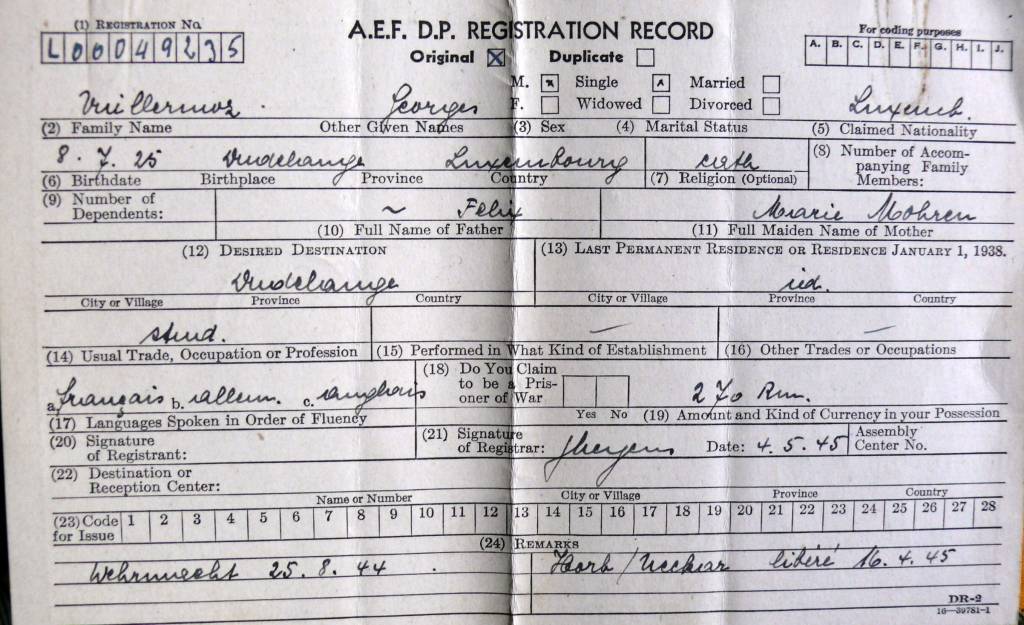 (1) REGISTRATION NO.
L00049235
A.E.F. D.P. REGISTRATION RECORD
Original ☒ Duplicate ☐
For coding purposes
A. B. C. D. E. F. G. H. I. J.
M. ☒ Single ☒ Married ☐
F. ☐ Widowed ☐ Divorced ☐
Vuillermoz Georges Luxemb.
(2) Family Name Other Given Names (3) Sex (4) Marital Status (5) Claimed Nationality
8. 7. 25 Dudelange Luxembourg cath
(6) Birthdate Birthplace Province Country (7) Religion (Optional)
(8) Number of Accom-
panying Family
Members:
(9) Number of
Dependents:
~ Felix Marie Mohren
(10) Full Name of Father (11) Full Maiden Name of Mother
(12) DESIRED DESTINATION (13) LAST PERMANENT RESIDENCE OR RESIDENCE JANUARY 1, 1938.
Dudelange id.
City or Village Province Country City or Village Province Country
stud. — —
(14) Usual Trade, Occupation or Profession (15) Performed in What Kind of Establishment (16) Other Trades or Occupations
a. français b. allem. c. anglais
(17) Languages Spoken in Order of Fluency
(18) Do You Claim
to be a Pris-
oner of War
Yes No
270 Rm.
(19) Amount and Kind of Currency in your Possession
(20) Signature
of Registrant:
(21) Signature
of Registrar: Date: 4. 5. 45
Assembly
Center No.
(22) Destination or
Reception Center:
Name or Number City or Village Province Country
(23) Code
for Issue
1 2 3 4 5 6 7 8 9 10 11 12 13 14 15 16 17 18 19 20 21 22 23 24 25 26 27 28
(24) REMARKS
Wehrmacht 25. 8. 44 . Horb / Neckar libéré 16. 4. 45
DR-2
16—39781-1